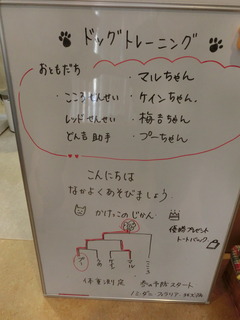 ドッグトレーニング
おともだち
・マルちゃん
・こころせんせい
・ケインちゃん
・レッドせんせい
・梅吉ちゃん
・どん吉 助手
・プーちゃん
こんにちは
なかよくあそびましょう
かけっこのじかん
優勝プレゼント
トートバック
マル
こころ
体重測定
スタート